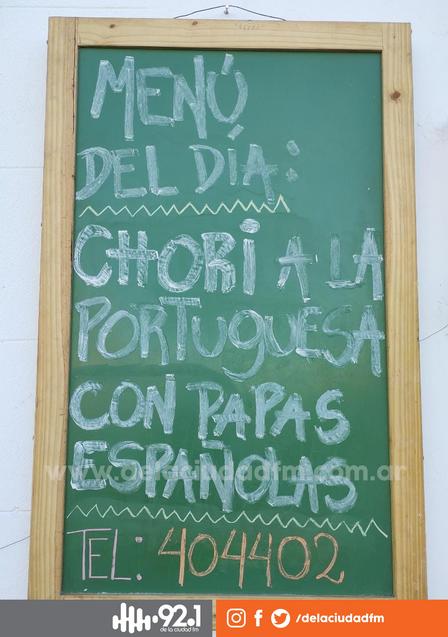 MENÚ
DEL DÍA:
CHORi A LA
PORTUGUESA
CON PAPAS
ESPAÑOLAS
www.delaciudadfm.com.ar
TEL: 404402
92.1
de la ciudad fm
/delaciudadfm